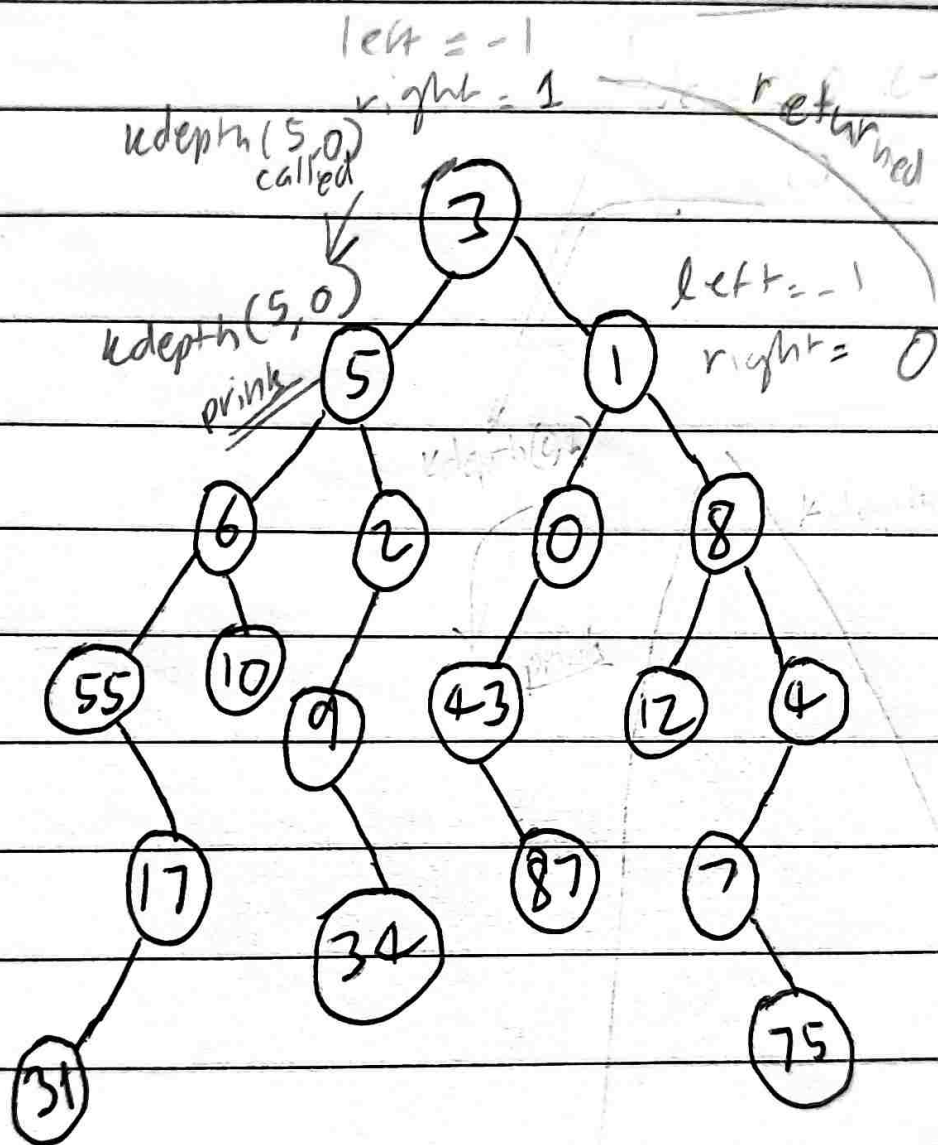 left = -1
right = 1
returned
kdepth(5,0)
called
3
kdepth(5,0)
left = -1
print
5
1
right = 0
6
2
0
8
55
10
9
43
12
4
17
34
87
7
31
75